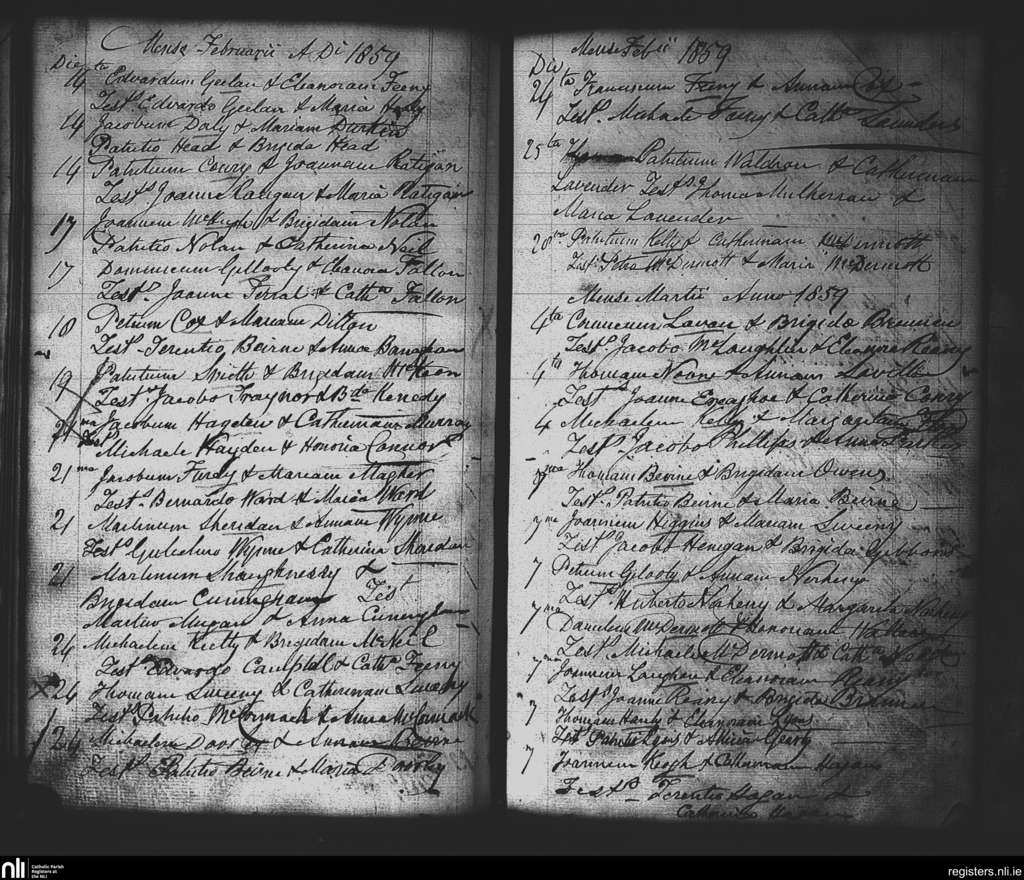 Mense Februarii A Di 1859
Die
14ta Edvardum Geelan & Eleanoram Feeny
Testb Edvardo Geelan & Maria
14 Jacobum Daly & Mariam Durken
Patritio Head & Brigida Head
14 Patritium Conry & Joannam Ratigan
Tests Joanne & Maria Ratigan
17 Joannem McHugh & Brigidam Nolan
Patritio Nolan & Catherina Neil
17 Dominicum Gillooly & Eleanora Fallon
Tests Joanne & Cath Fallon
18 Petrum Cox & Mariam Dillon
Tests Terentio Beirne & Anna
19 Patritium & Brigidam McKeon
Tests Jacobo Traynor & Bda Kenedy
21ma Jacobum Hagden & Catherinam Murray
Michaele Hayden & Honoria Connor
21ma Jacobum & Mariam Magher
Tests Bernardo Ward & Maria Ward
21 Martinum Sheridan & Annam Wynne
Tests Gulielmo Wynne & Catherina Sheridan
21 Martinum Shaughnessy &
Brigidam Cuningham Test
Martino & Anna
24 Michaelem Kielty & Brigidam McNeil
Test Edvardo Campbel & Cath Feeny
24 Thomam Sweeny & Catherinam Sweeny
Tests Patritio McCormack & Anna McCormack
24 Michaelem & Annam Beirne
Tests Patritio Beirne & Maria
Mense Febii 1859
Die
24ta Franciscum Feeny & Annam Cox
Tests Michaele Feeny & Cath Saunders
25ta Patritium Waldron & Catherinam
Lavender Tests Thoma Mulhernan &
Maria Lavender
28ta Patritium Kelly & Catherinam McDermott
Tests Petro McDermott & Maria McDermott
Mense Martii Anno 1859
4ta Lavan & Brigida Brennan
Tests Jacobo McLoughlin & Eleanora Reany
4th Thomam Noone & Annam
Tests Joanne & Catherina Conry
4 Michaelem Kelly & Margaritam
Tests Jacobo Phillips & Anna
7ma Thomam Beirne & Brigidam Owens
Tests Patritio Beirne & Maria Beirne
7ma Joannem Higgins & Mariam Sweeny
Tests Jacobo Henigan & Brigida Gibbons
7 Petrum Gilooly & Annam
Tests Huberto & Margarita
7ma Danielem McDermott & Honoriam
Tests Michaele McDermott & Cath
7ma Joannem & Eleanoram Reany
Tests Joanne Reany & Brigida Brennan
7 Thomam Hanly & Eleanoram Lyons
Tests Patritio Lyons & Geerty
7 Joannem Keogh & Catherinam Hagan
Tests Terentio Hagan &
Catherina
nli
Catholic Parish
Registers at
the NLI
registers.nli.ie